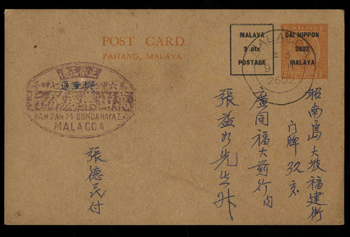 POST CARD
PAHANG, MALAYA.
MALAYA
2 cts
POSTAGE
DAI NIPPON
2602
MALAYA
MALACCA
昭南島大坡福建街
門牌玖号
廣同福大葯行內
張益
先生升
張德民付